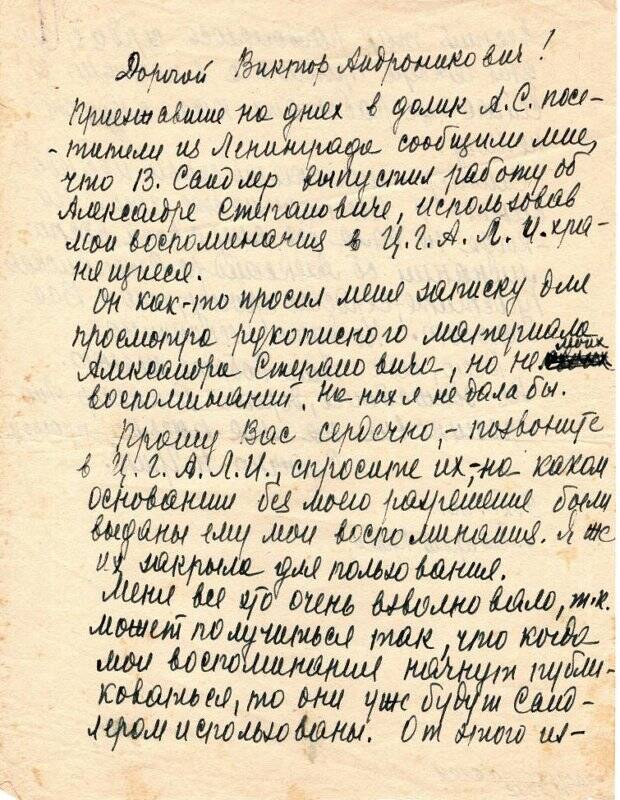 Дорогой Виктор Андроникович!
Приезжавшие на днях в домик А.С. посе-
-тители из Ленинграда сообщили мне,
что В. Сандлер выпустил работу об
Александре Степановиче, использовав
мои воспоминания в Ц.Г.А.Л.И. хра-
нящиеся.
Он как-то просил меня записку для
просмотра рукописного материала
Александра Степановича, но не моих
воспоминаний. На них я не дала бы.
Прошу Вас сердечно, - позвоните
в Ц.Г.А.Л.И., спросите их, - на каком
основании без моего разрешения были
выданы ему мои воспоминания. Я ж
их закрыла для пользования.
Меня все это очень взволновало, т.к.
может получиться так, что когда
мои воспоминания начнут публи-
коваться, то они уж будут Санд-
лером использованы. От этого их-